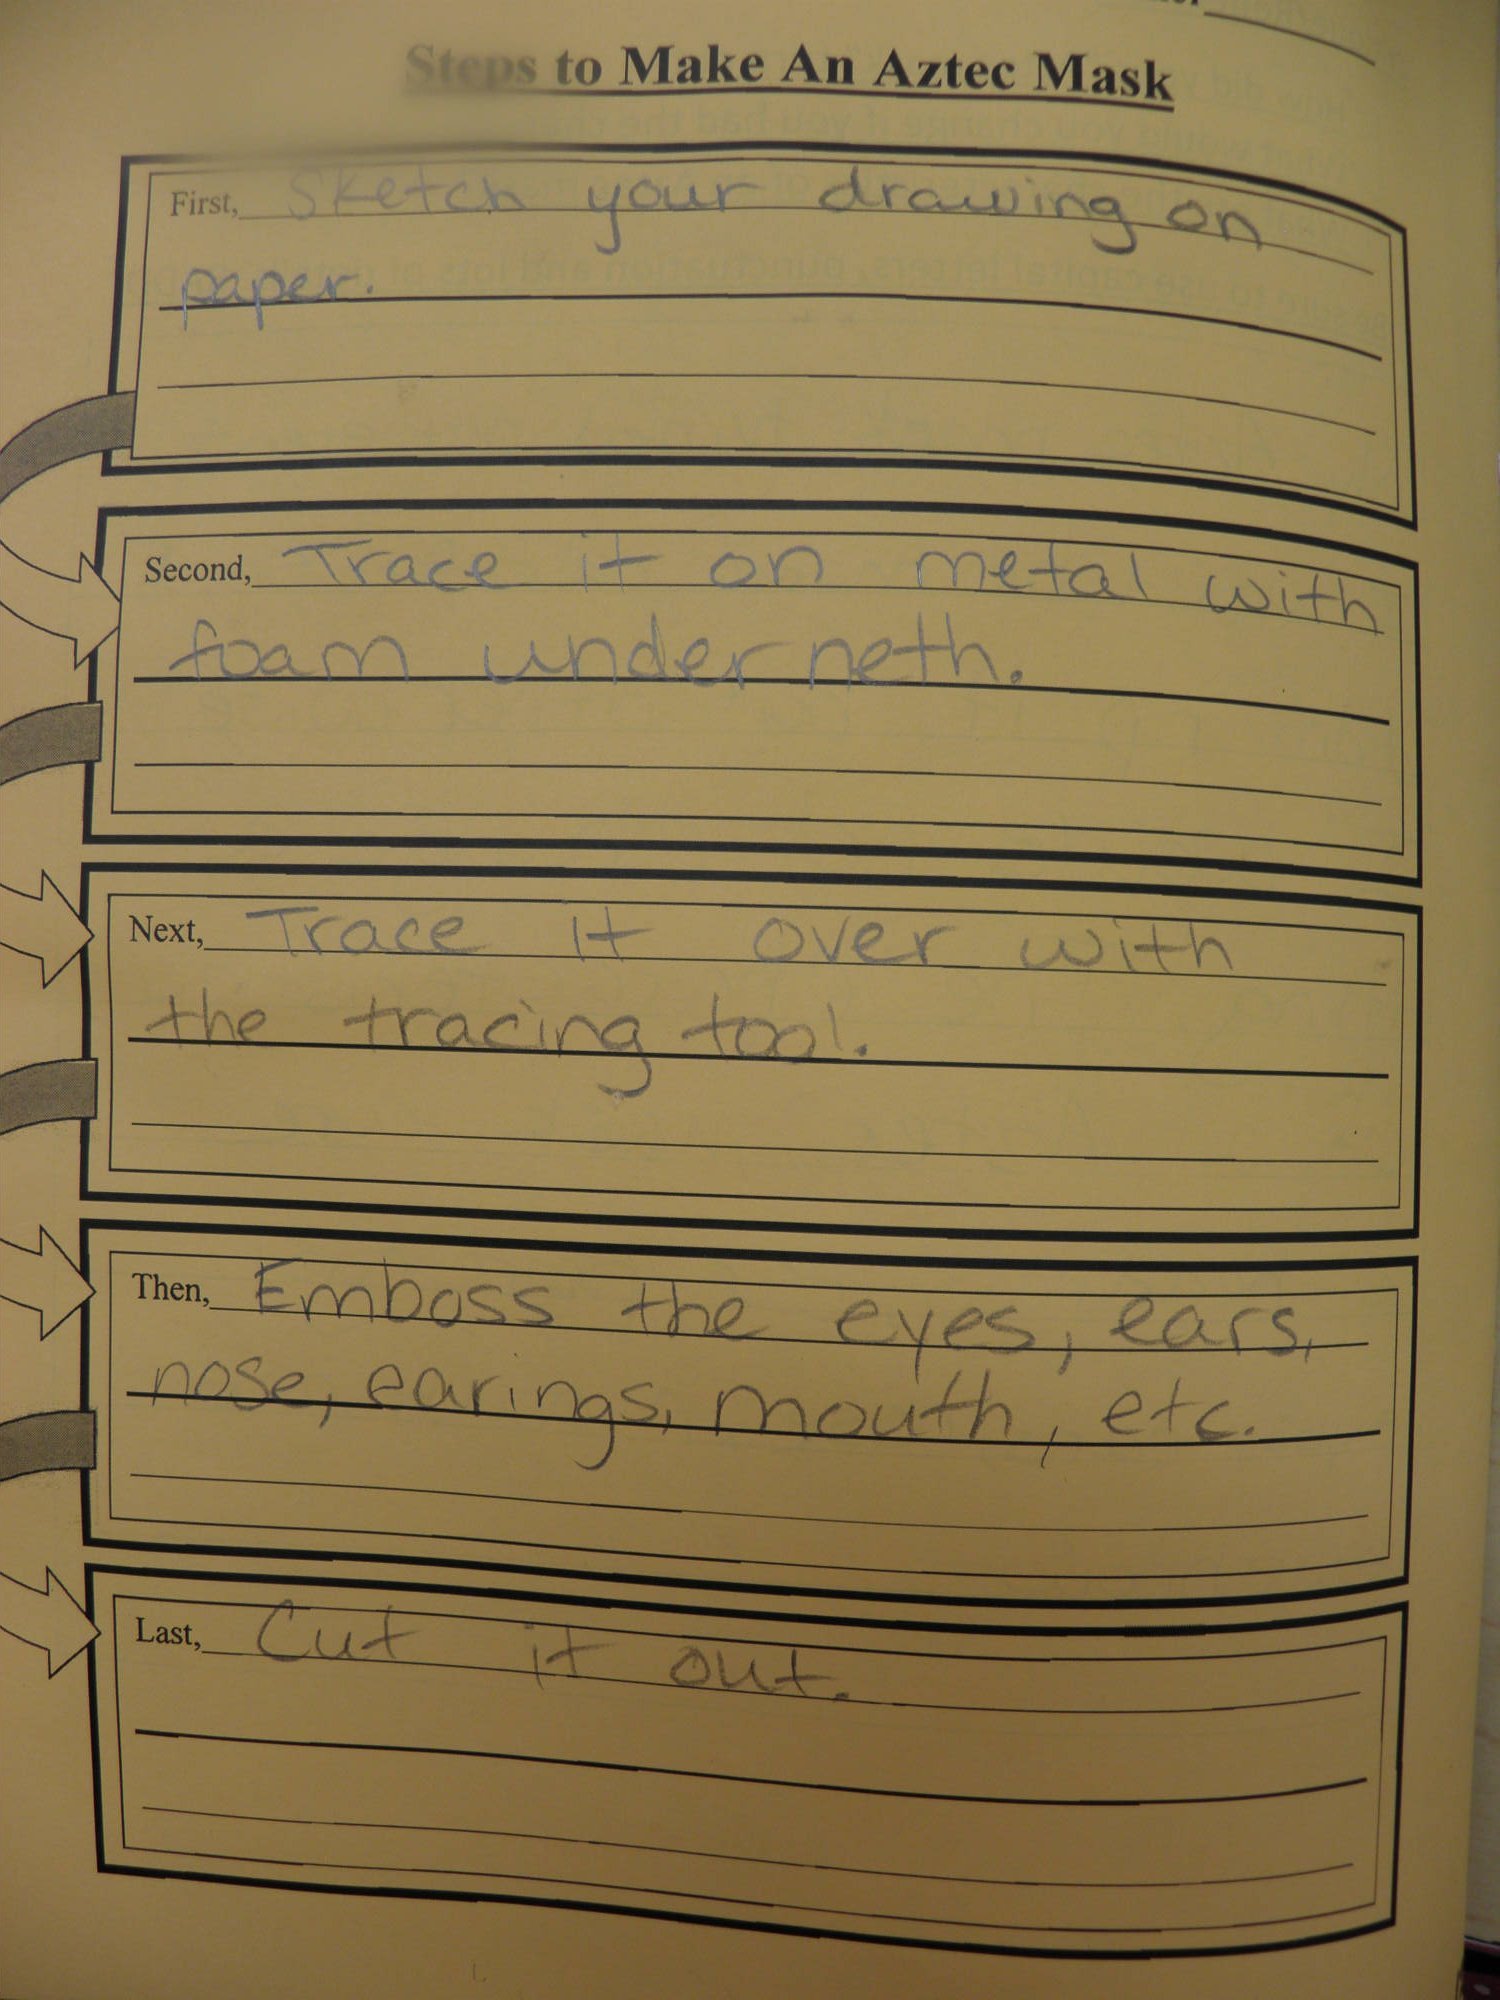 Steps to Make An Aztec Mask
First, Sketch your drawing on
paper.
Second, Trace it on metal with
foam underneth.
Next, Trace it over with
the tracing tool.
Then, Emboss the eyes, ears,
nose, earings, mouth, etc.
Last, Cut it out.